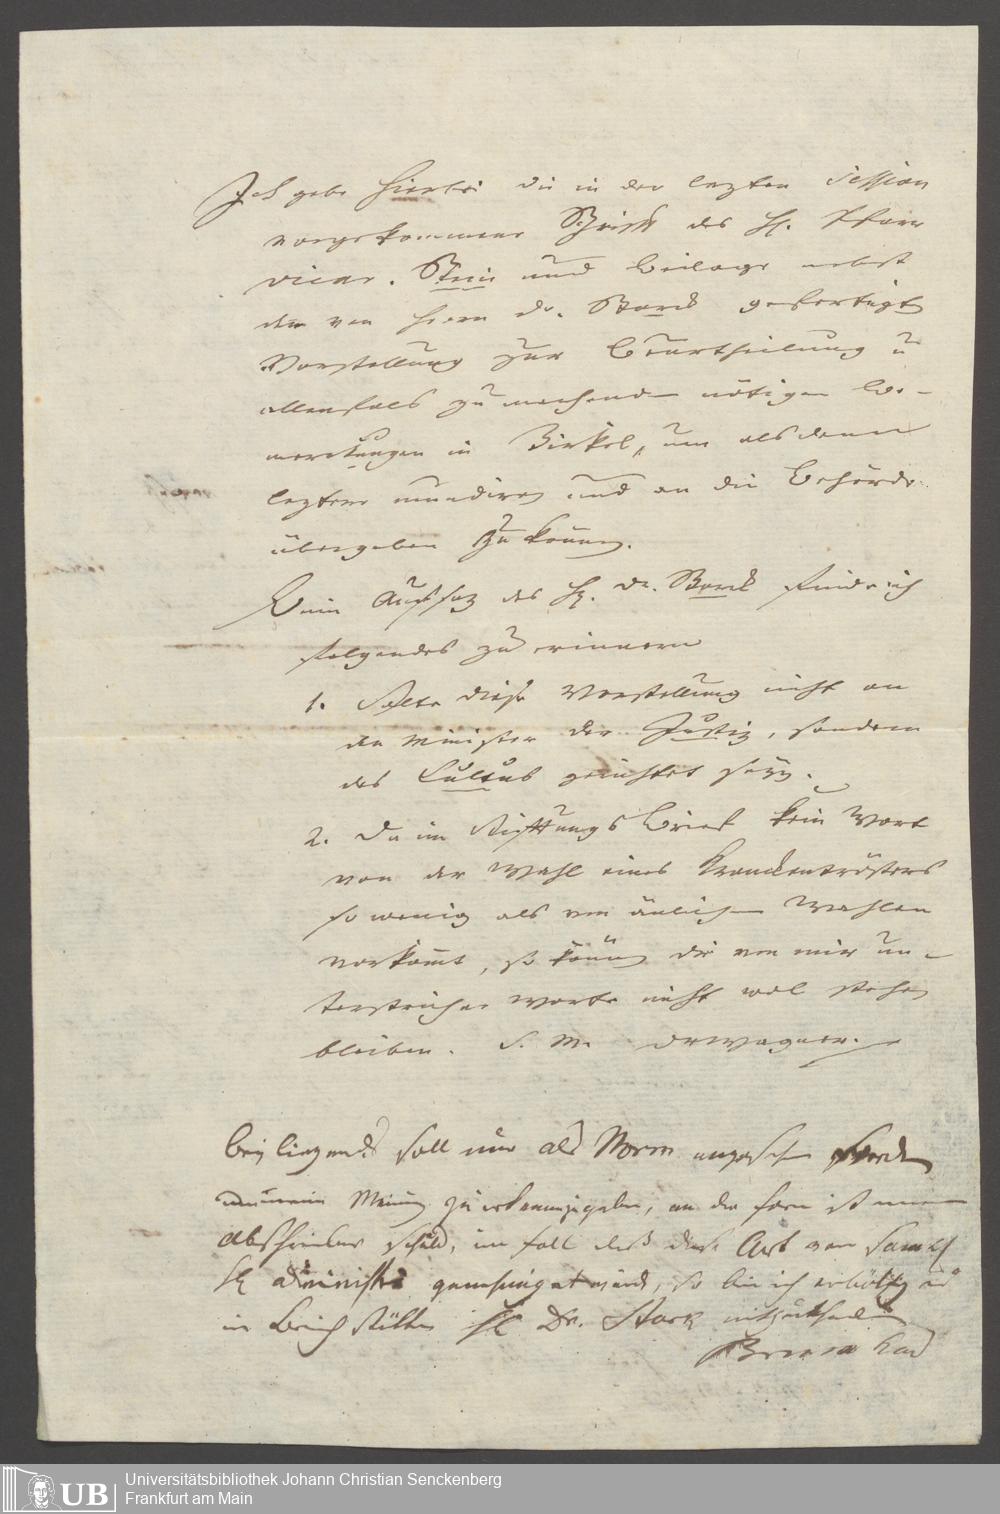 Ich gebe hierbei die in der lezten Session
vorgekommene Schrift des H. Pfarr
vicar. Stein und Beilage nebst
der von Herrn Dr. Starck gefertigt
Vorstellung zur Beurtheilung u
allenfals zu machenden nötigen Be-
merckungen in Zirkel, um alsdann
leztere mundiren und an die Behörde
übergeben zu können.
Beim Aufsaz des H. Dr. Starck finde ich
folgendes zu erinnern
1. Solte diese Vorstellung nicht an
den Minister der Justiz, sondern
des Cultus gerichtet seyn.
2. Da im Stifftungs Brief kein Wort
von der Wahl eines Kranckentrösters
so wenig als von änlichen Wahlen
vorkömt, so können die von mir un-
terstrichne Worte nicht wol stehen
bleiben. S. M. 
Beyliegendes soll nur als Norm angesehen werden
meine Meinung zu erkennen zu geben, an der form ist mein
abschreiber schuld, im fall daß diese Art von
H administr genehmiget würde, so bin ich erbötig
in H Dr. Stark mitzutheilen
Universitätsbibliothek Johann Christian Senckenberg
Frankfurt am Main
UB